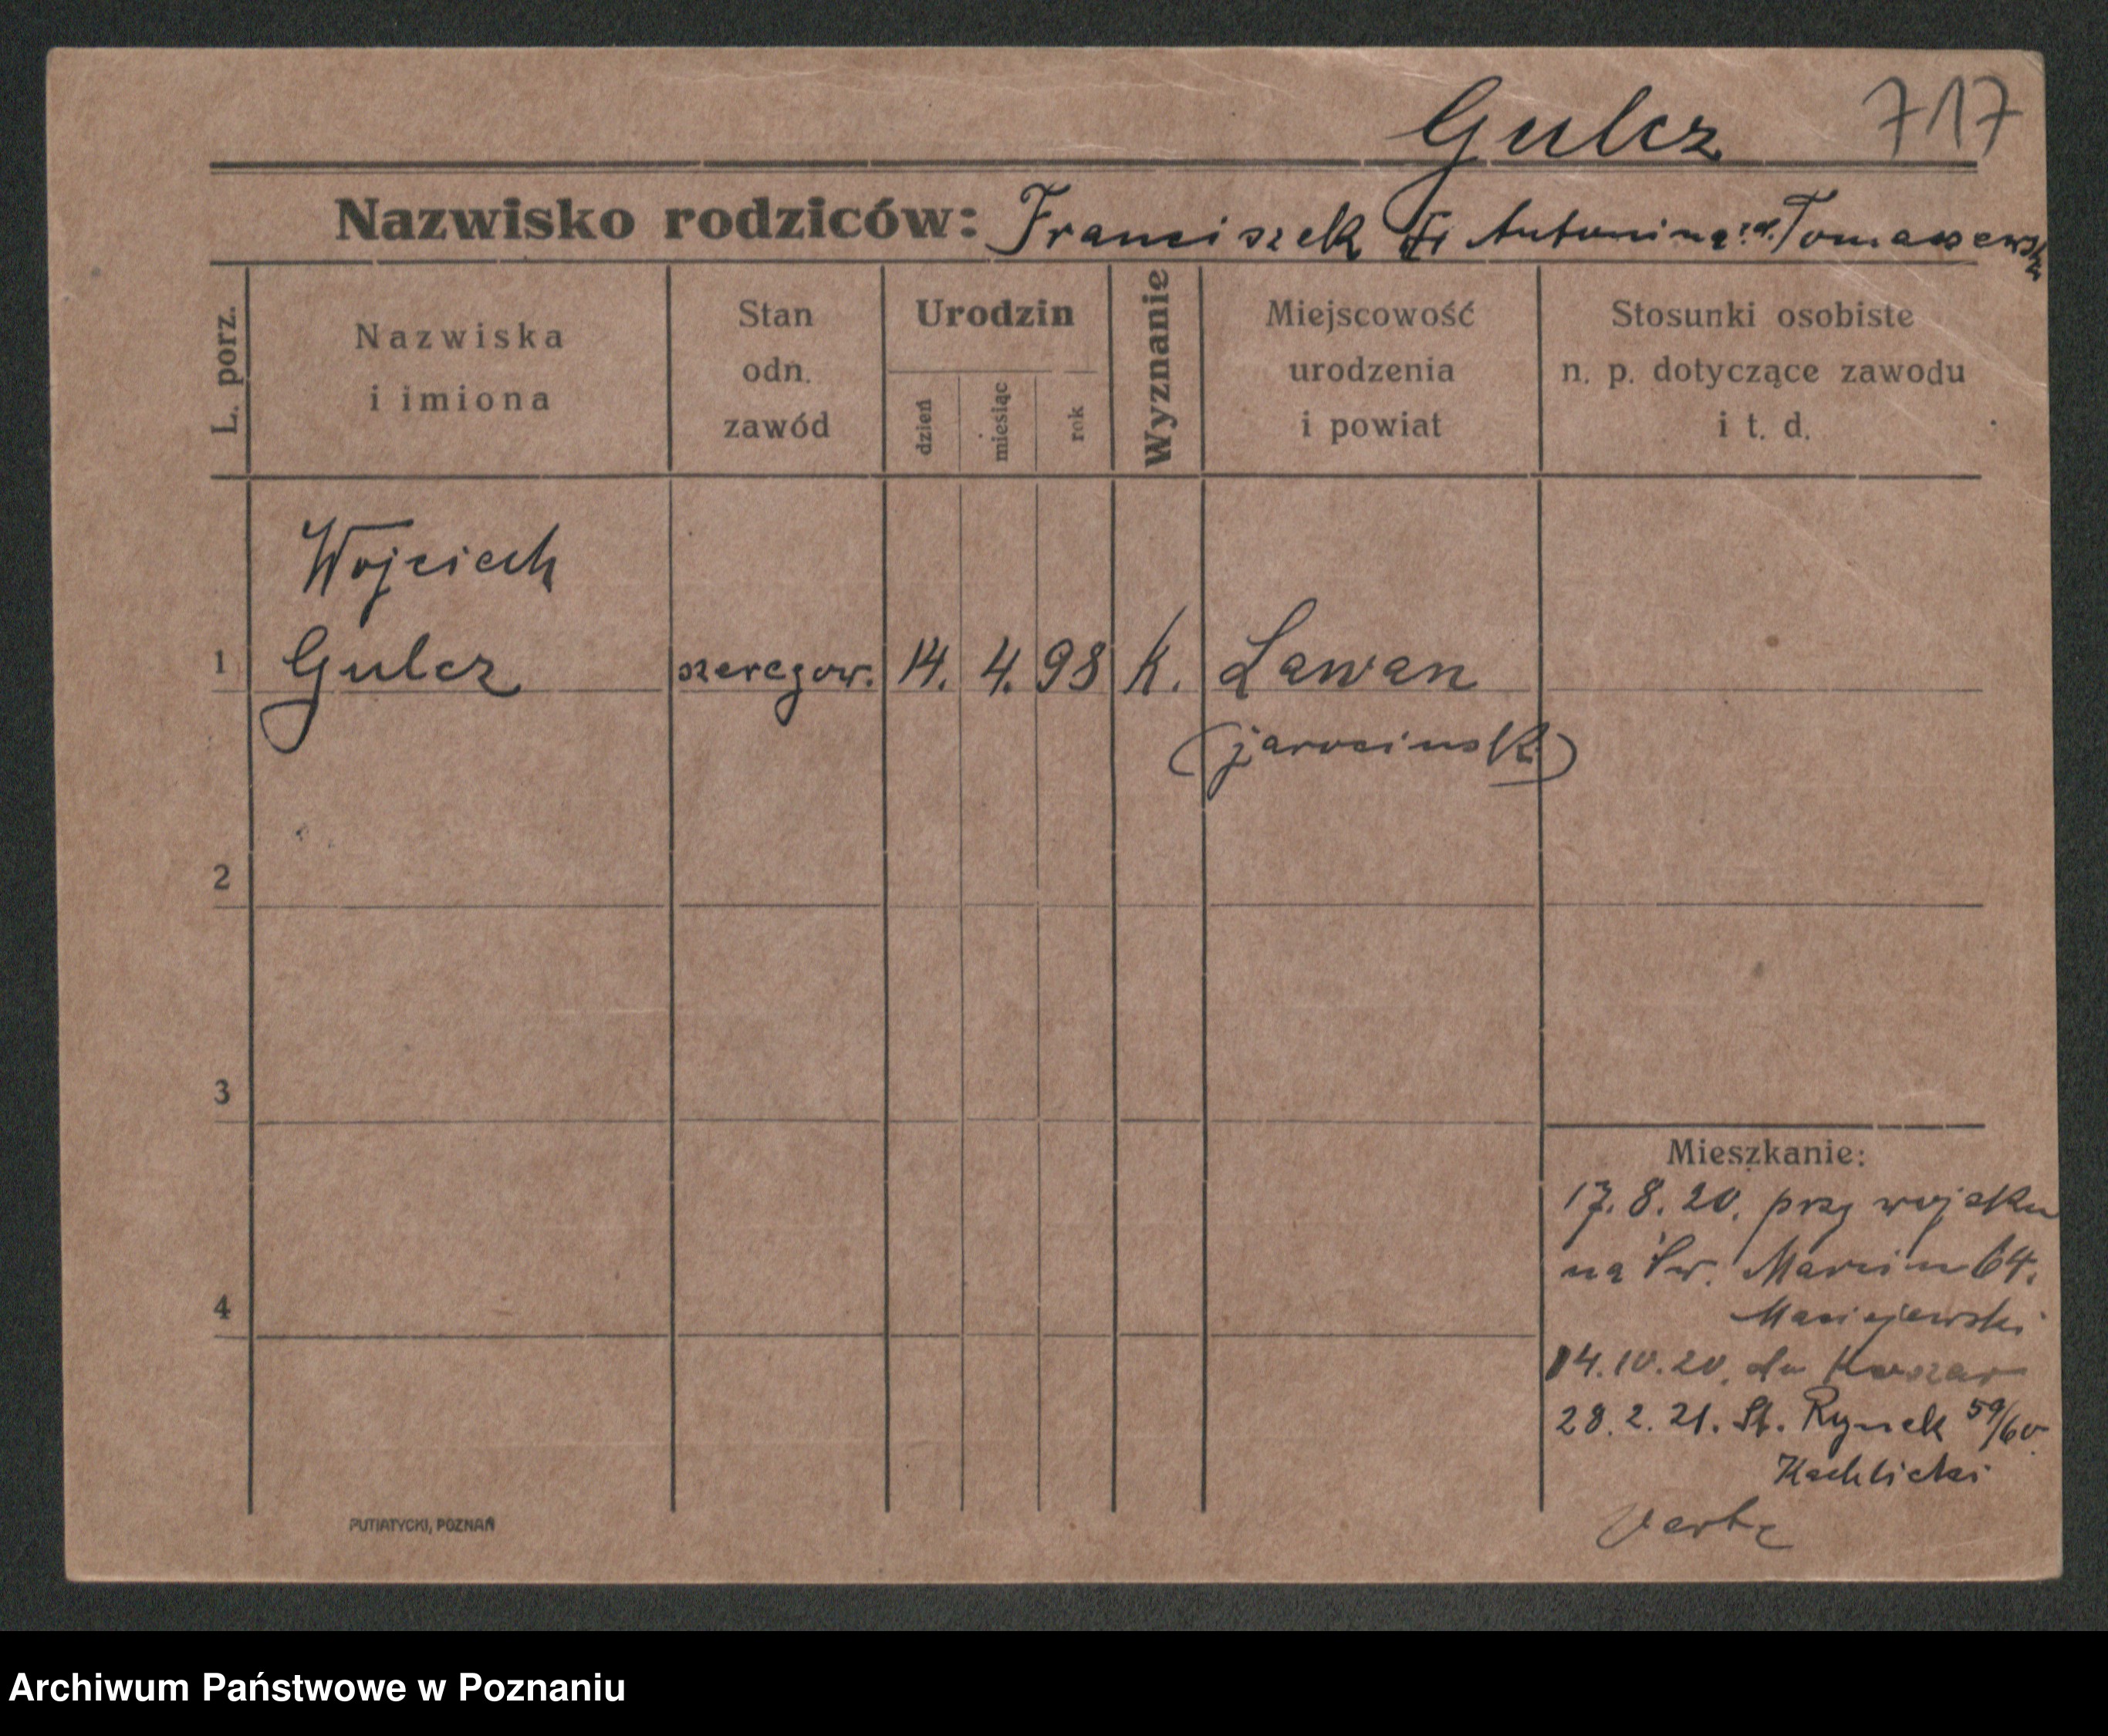 Gulcz 717
Nazwisko rodziców: Franciszek Antonina r.d. Tomaszewski
L. porz.
Nazwiska
i imiona
Stan
odn.
zawód
Urodzin
dzień
miesiąc
rok
Wyznanie
Miejscowość
urodzenia
i powiat
Stosunki osobiste
n. p. dotyczące zawodu
i t. d.
Wojciech
1 Gulcz szeregow. 14. 4. 98 k. Lawan
(jarocinsk.)
2
3
4
Mieszkanie:
17. 8. 20. przy wojsku
na Św. Marcin 64.
Maciejewski
14. 10. 20. do Koszar
28. 2. 21. St. Rynek 59/60
Kachlicki
PUTIATYCKI, POZNAŃ
Archiwum Państwowe w Poznaniu